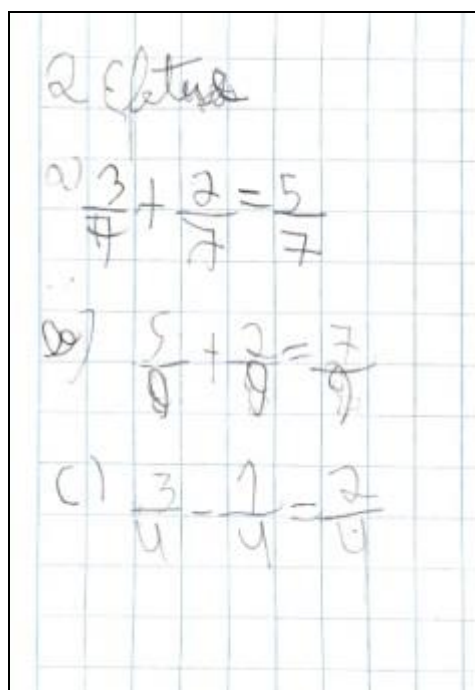 2 Efetue
a) 3/7 + 2/7 = 5/7
b) 5/9 + 2/9 = 7/9
c) 3/4 - 1/4 = 2/4